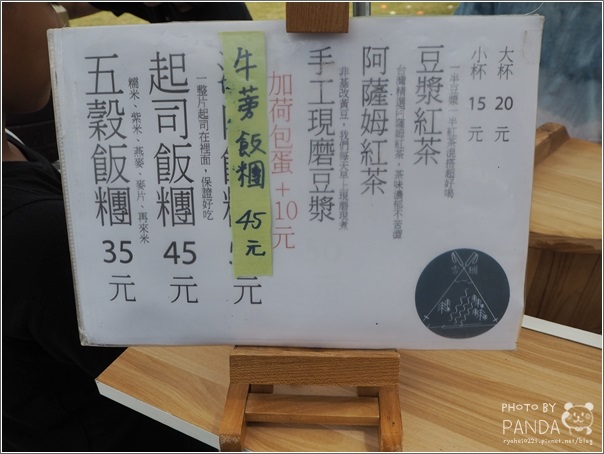 大杯 20 元
小杯 15 元
一半豆漿一半紅茶混搭超好喝
豆漿紅茶
台灣精選阿薩姆紅茶，茶味濃郁不苦澀
阿薩姆紅茶
非基改黃豆，我們每天早上現磨現煮
手工現磨豆漿
加荷包蛋+10元
牛蒡飯糰 45元
飯糰
元
一整片起司在裡面，保證好吃
起司飯糰 45 元
糯米、紫米、燕麥、麥片、再來米
五穀飯糰 35 元
PHOTO BY
PANDA